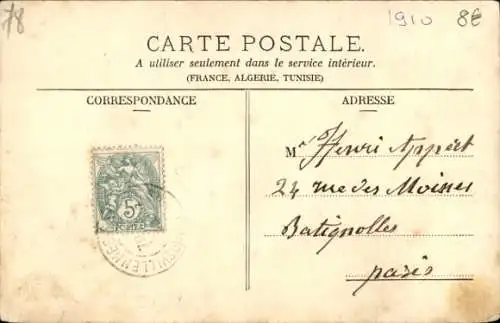 78
1910
8€
CARTE POSTALE.
A utiliser seulement dans le service intérieur.
(FRANCE, ALGERIE, TUNISIE)
CORRESPONDANCE
ADRESSE
Mr Henri Appert
24 rue des Moines
Batignolles
paris
5c
POSTES